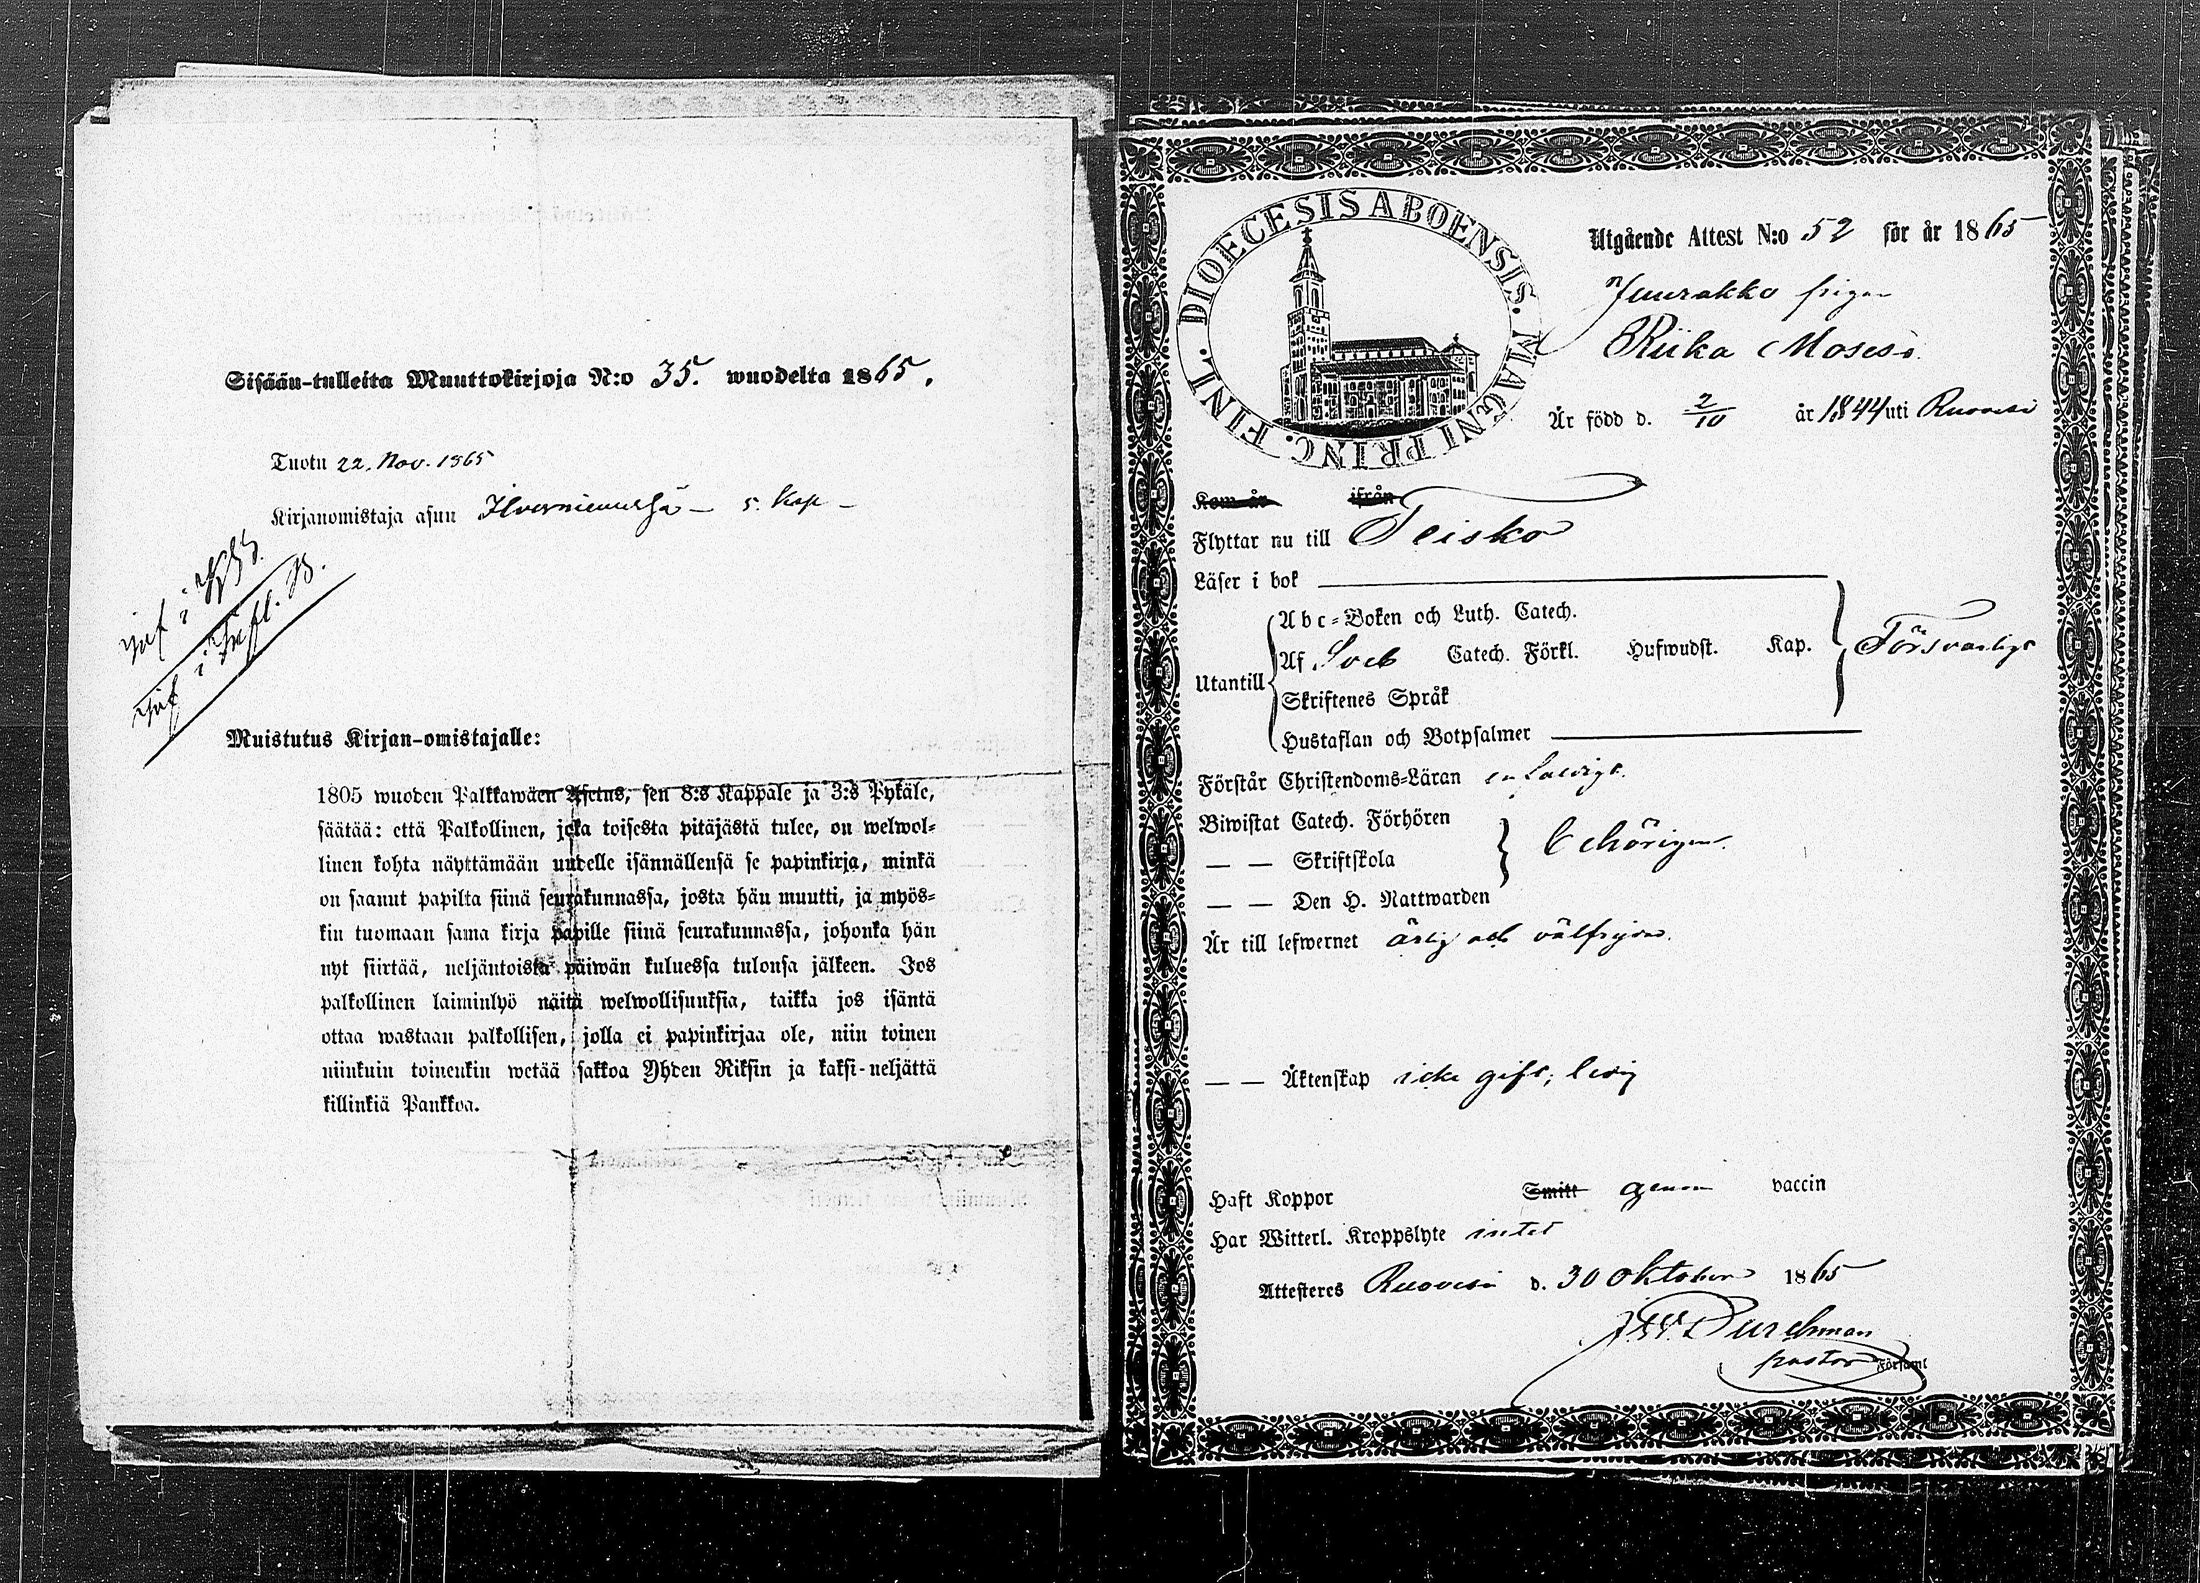 Sisään-tulleita Muuttokirjoja N:o 35. wuodelta 1865.
Tuotu 22. Nov. 1865
Kirjanomistaja asuu s. Kap –
inf i
inf i Infl. B.
Muistutus Kirjan-omistajalle:
1805 wuoden Palkkawäen Asetus, sen 8:s Kappale ja 3:s Pykäle,
säätää: että Palkollinen, joka toisesta pitäjästä tulee, on welwol-
linen kohta näyttämään uudelle isännällensä se papinkirja, minkä
on saanut papilta siinä seurakunnassa, josta hän muutti, ja myös-
kin tuomaan sama kirja papille siinä seurakunnassa, johonka hän
nyt siirtää, neljäntoista päiwän kuluessa tulonsa jälkeen. Jos
palkollinen laiminlyö näitä welwollisuuksia, taikka jos isäntä
ottaa wastaan palkollisen, jolla ei papinkirjaa ole, niin toinen
niinkuin toinenkin wetää sakkoa Yhden Riksin ja kaksi-neljättä
killinkiä Pankkoa.
DIOECESIS ABOENSIS. MAGNI PRINC. FINL.
Utgående Attest N:o 52 för år 1865
Juurakko pigan
Riika Moses d.
Är född d. 2/10 år 1844 uti Ruovesi
Kom år ifrån
Flyttar nu till Teisko
Läser i bok
Abc-Boken och Luth. Catech.
Utantill Af Sveb Catech. Förkl. Hufwudst. Kap. Försvarligt
Skriftenes Språk
Hustaflan och Botpsalmer
Förstår Christendoms-Läran enfaldigt.
Biwistat Catech. Förhören
— — Skriftskola behörigen.
— — Den H. Nattwarden
Är till lefwernet ärlig och välfrejdad.
— — Äktenskap icke gift; ledig
Haft Koppor Smitt genom vaccin
Har Witterl. Kroppslyte intet
Attesteres Ruovesi d. 30 Oktober 1865
Durchman
pastor Församl